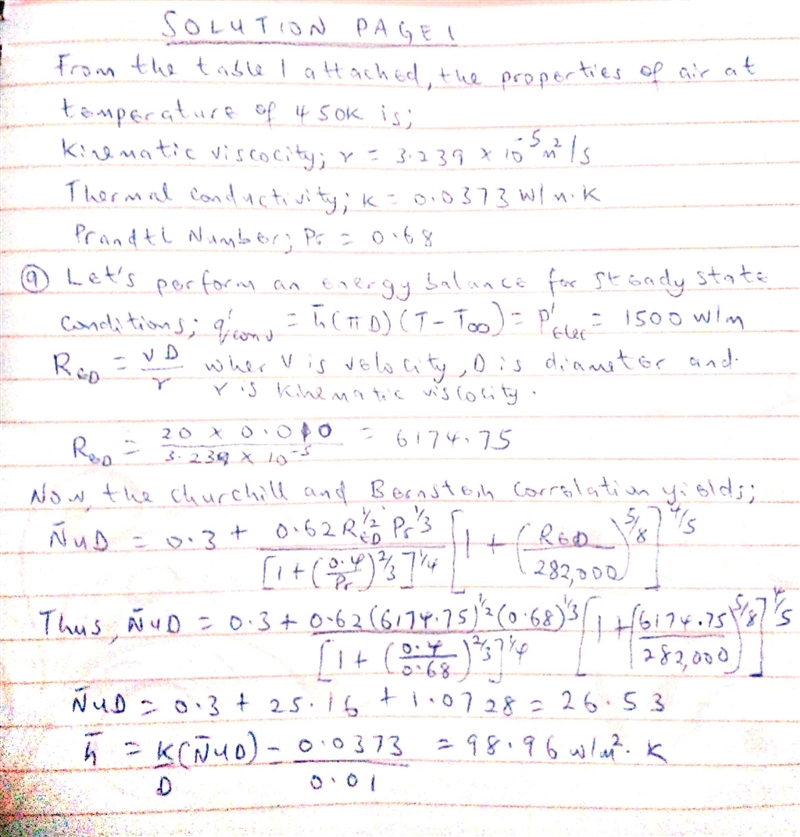 SOLUTION PAGE 1
From the table 1 attached, the properties of air at
temperature of 450K is;
Kinematic viscocity; r = 3.239 x 10^-5 m^2/s
Thermal conductivity; K = 0.0373 W/m.K
Prandtl Number; Pr = 0.68
(a) Let's perform an energy balance for steady state
conditions; q'conv = h̄(πD)(T-T∞) = P'elec = 1500 W/m
ReD = VD/r wher V is velocity, D is diameter and
r is kinematic viscocity.
ReD = (20 x 0.010)/(3.239 x 10^-5) = 6174.75
Now, the Churchill and Bernstein correlation yields;
N̄uD = 0.3 + (0.62 ReD^1/2 Pr^1/3)/[1+(0.4/Pr)^2/3]^1/4 [1 + (ReD/282,000)^5/8]^4/5
Thus, N̄uD = 0.3 + (0.62(6174.75)^1/2 (0.68)^1/3)/[1+(0.4/0.68)^2/3]^1/4 [1+(6174.75/282,000)^5/8]^4/5
N̄uD = 0.3 + 25.16 + 1.0728 = 26.53
h̄ = K(N̄uD)/D - 0.0373/0.01 = 98.96 w/m^2.K